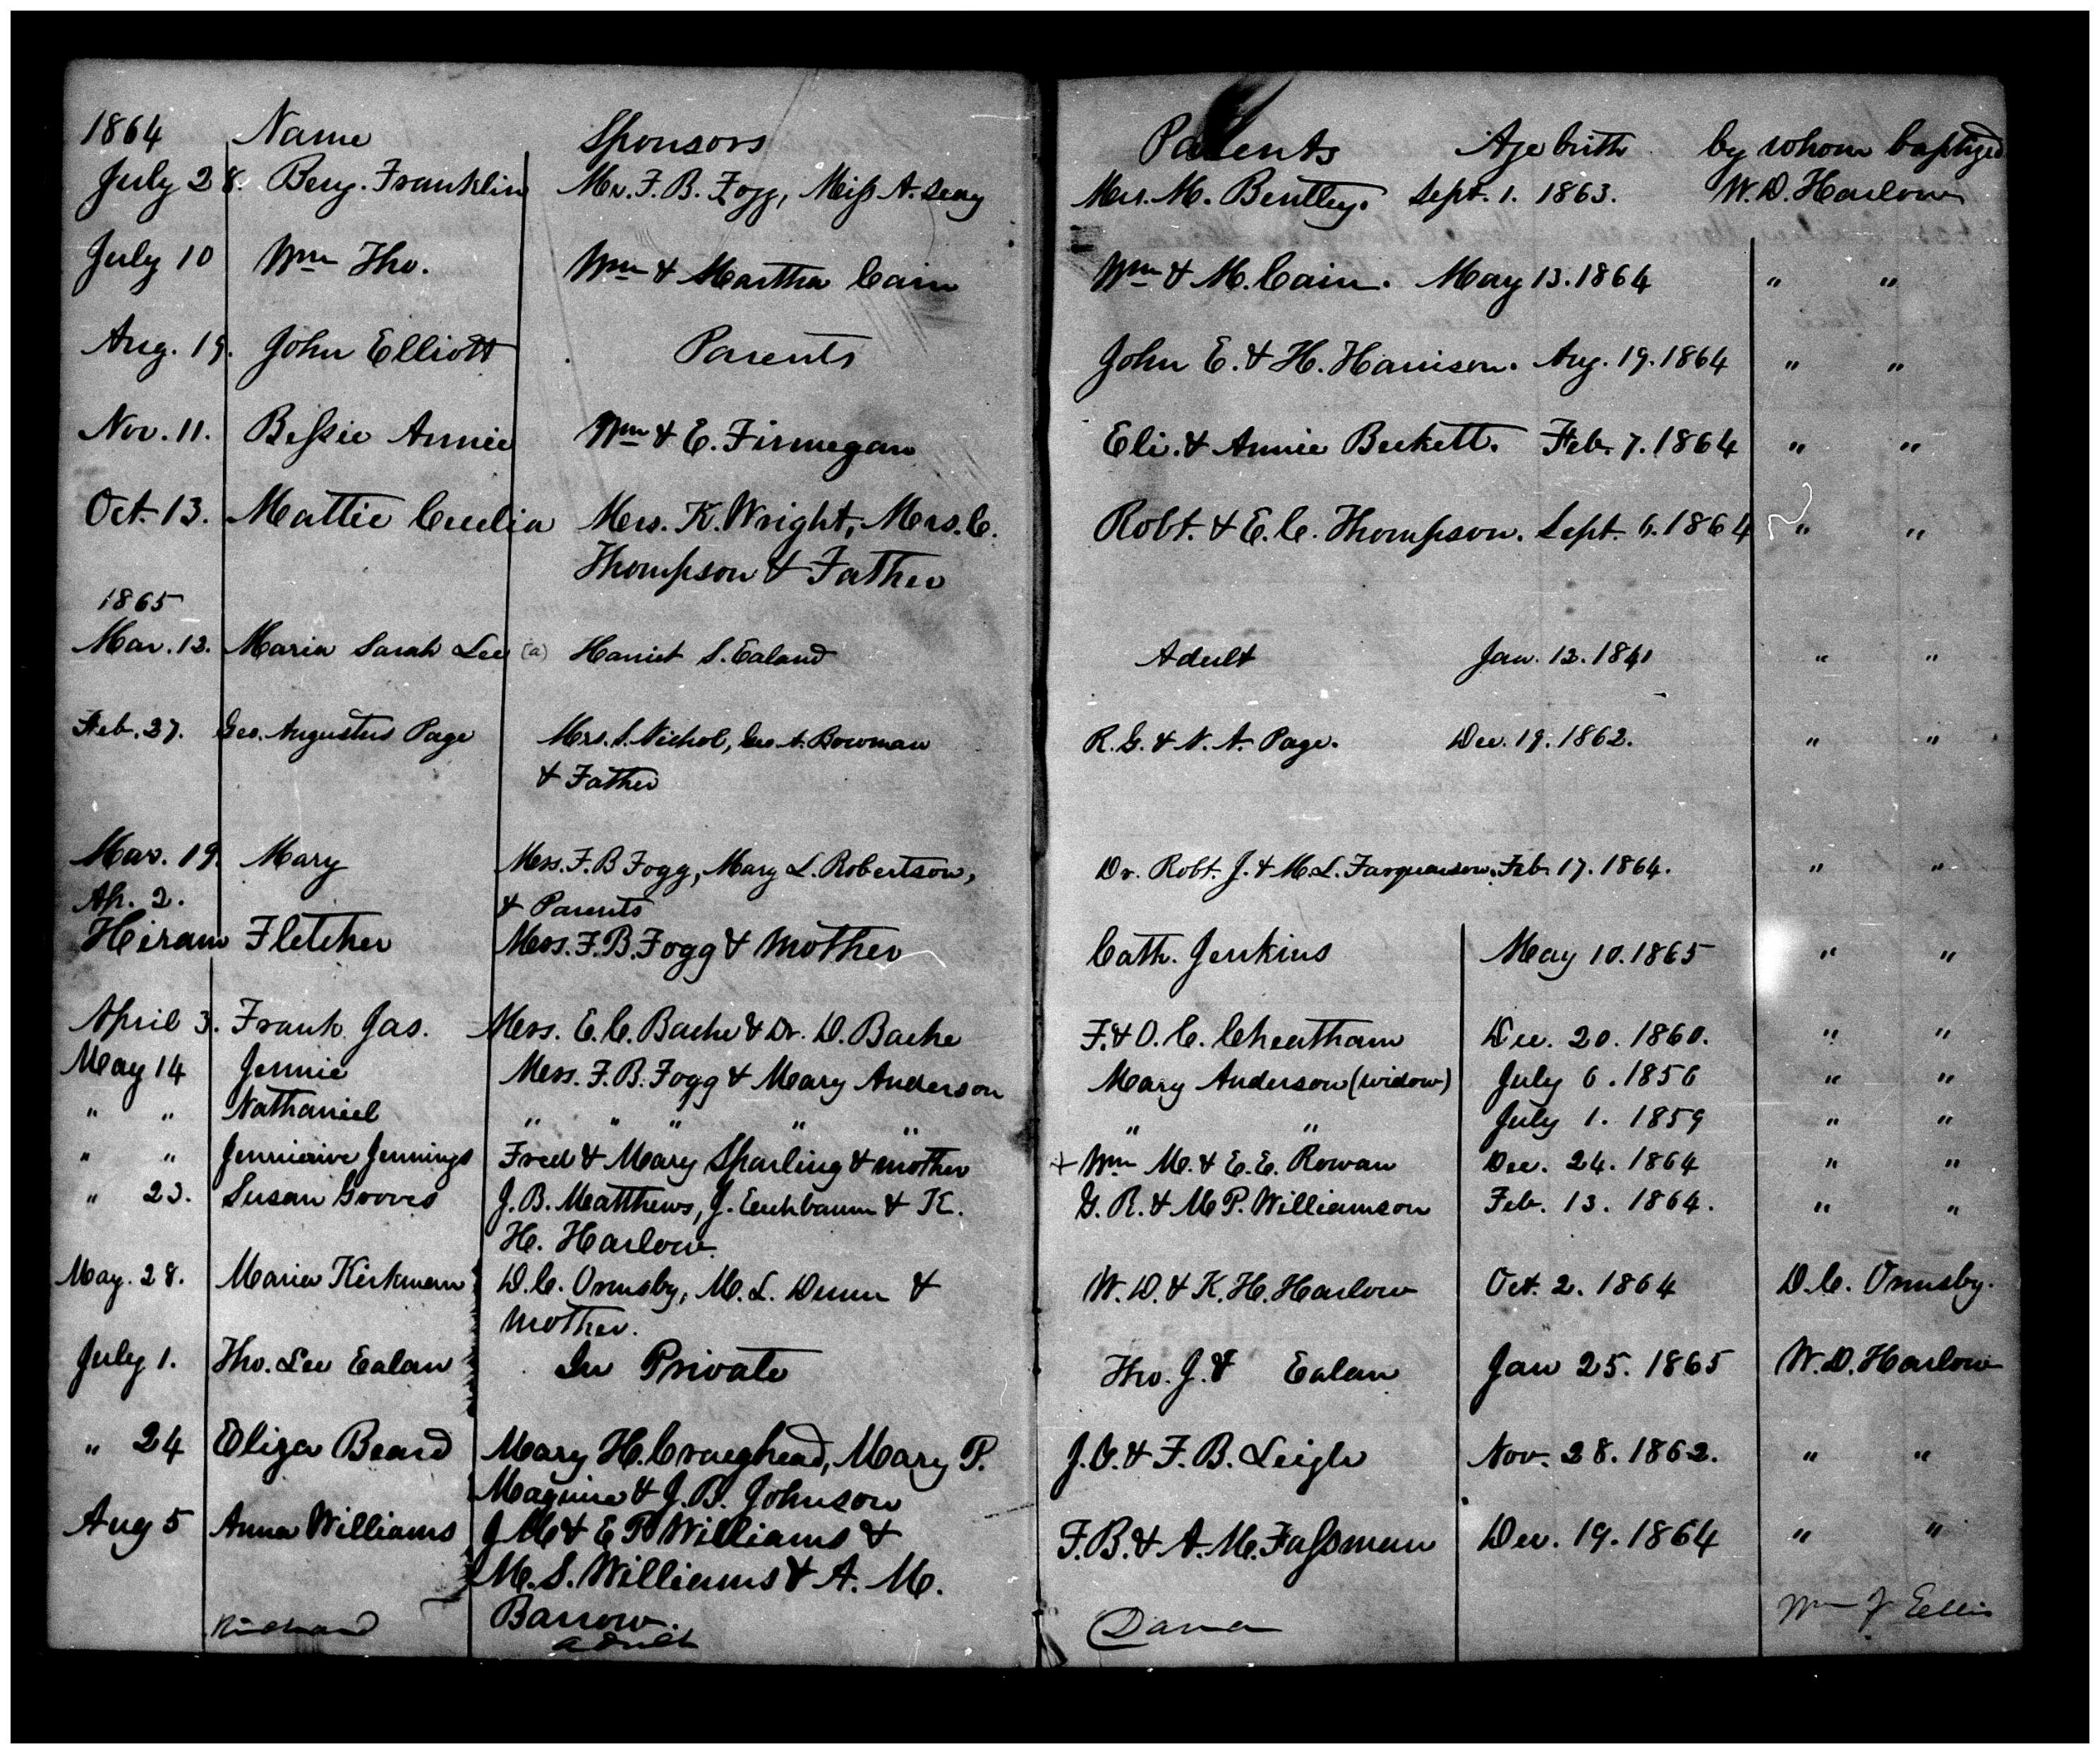 1864 Name Sponsors Parents Age birth by whom baptized
July 28. Benj. Franklin Mr. F. B. Fogg, Miss A. Seay Mrs. M. Bentley. Sept. 1. 1863. W. D. Harlow
July 10 Wm Tho. Wm & Martha Cain Wm & M. Cain. May 13. 1864 " "
Aug. 19. John Elliott Parents John E. & H. Harrison. Aug. 19. 1864 " "
Nov. 11. Bessie Annie Wm & E. Finnegan Eli. & Annie Beckett. Feb. 7. 1864 " "
Oct. 13. Mattie Cecelia Mrs. K. Wright, Mrs. C. Robt. & E. C. Thompson. Sept. 6. 1864 " "
Thompson & Father
1865
Mar. 12. Maria Sarah Lee (a) Harriet S. Ealand Adult Jan. 12. 1841 " "
Feb. 27. Geo. Augustus Page Mrs. S. Nichol, Geo A. Bowman R. G. & N. A. Page. Dec. 19. 1862. " "
& Father
Mar. 19. Mary Mrs. F. B Fogg, Mary L. Robertson, Dr. Robt. J. & M. L. Farquharson. Feb. 17. 1864. " "
Ap. 2. & Parents
Hiram Fletcher Mrs. F. B. Fogg & Mother Cath. Jenkins May 10. 1865 " "
April 3. Frank Jas. Mrs. E. C. Bache & Dr. D. Bache F. & O. C. Cheatham Dec. 20. 1860. " "
May 14 Jennie Mrs. F. B. Fogg & Mary Anderson Mary Anderson (widow) July 6. 1856 " "
" " Nathaniel " " " " " " " July 1. 1859 " "
" " Jennings Fred & Mary Sparling & mother + Wm M. & E. E. Rowan Dec. 24. 1864 " "
" 23. Susan Groves J. B. Matthews, J. Eichbaum & K. G. R. & M P. Williamson Feb. 13. 1864. " "
H. Harlow.
May. 28. Maria Kirkman D. C. Ormsby, M. L. Dunn & W. D. & K. H. Harlow Oct. 2. 1864 D. C. Ormsby.
Mother.
July 1. Tho. Lee Ealan In Private Tho. J. & Ealan Jan 25. 1865 W. D. Harlow
" 24 Eliza Beard Mary H. Craighead, Mary P. J. O. & F. B. Leigh Nov. 28. 1862. " "
Maguire & J. B. Johnson
Aug 5 Anna Williams J M & E P Williams & F. B. & A. M. Fassman Dec. 19. 1864 " "
M. S. Williams & A. M.
Barrow.
Richard adult Dana Wm J Ellis